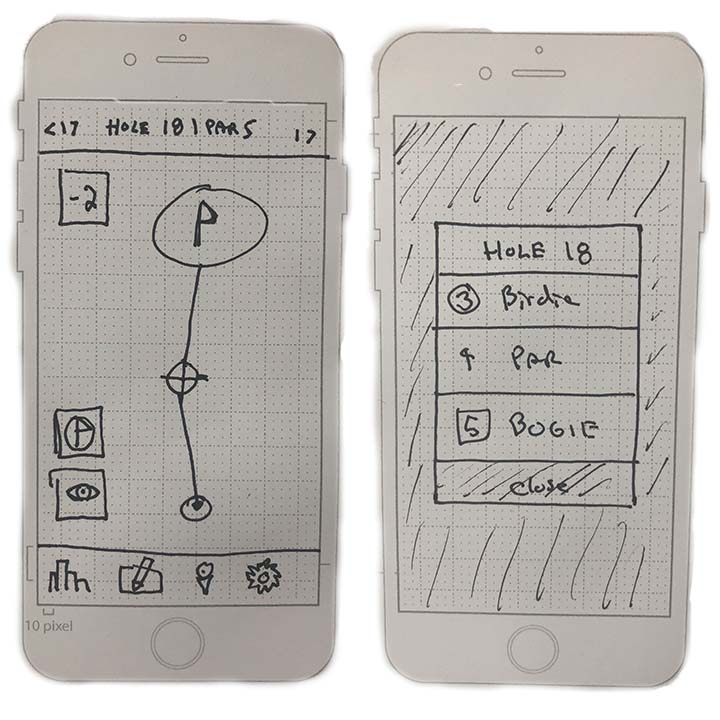 <17 HOLE 18 | PAR 5 17
-2
P
P
10 pixel
HOLE 18
3 Birdie
PAR
5 BOGIE
close